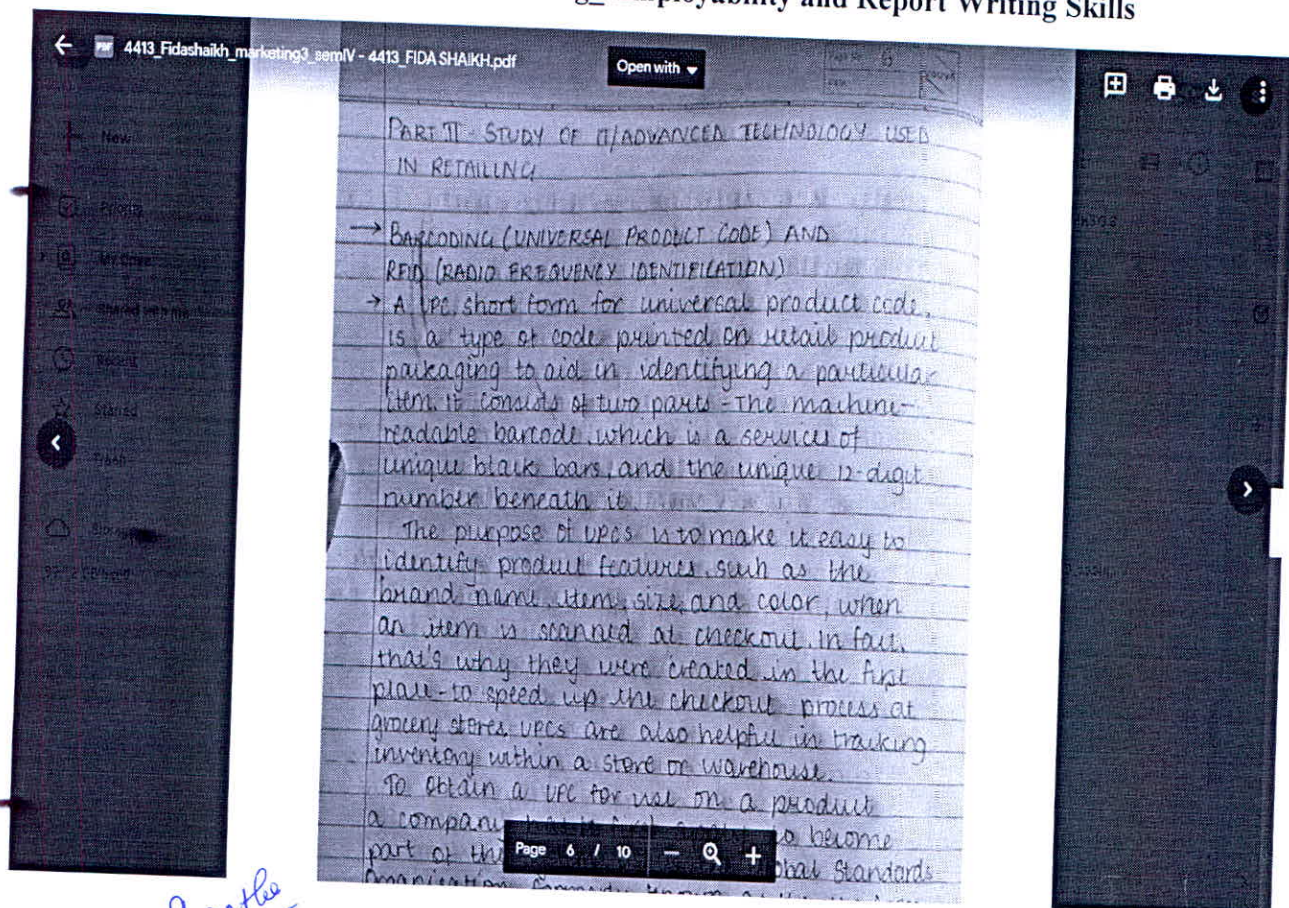 Employability and Report Writing Skills
4413_Fidashaikh_marketing3_semIV - 4413_FIDA SHAIKH.pdf
Open with
Page No. 6
Date
New
Priority
My Drive
Shared with me
Recent
Starred
Trash
PART II - STUDY OF IT/ADVANCED TECHNOLOGY USED
IN RETAILING
→ BARCODING (UNIVERSAL PRODUCT CODE) AND
RFID (RADIO FREQUENCY IDENTIFICATION)
→ A UPC, short form for universal product code,
is a type of code printed on retail product
packaging to aid in identifying a particular
item. it consists of two parts - The machine-
readable barcode, which is a services of
unique black bars, and the unique 12-digit
number beneath it.
The purpose of UPCs is to make it easy to
identify product features, such as the
brand name, item, size, and color, when
an item is scanned at checkout. in fact,
that's why they were created in the first
place - to speed up the checkout process at
grocery stores UPCs are also helpful in tracking
inventory within a store or warehouse.
To obtain a UPC for use on a product
a company to become
part of the Global Standards
Page 6 / 10